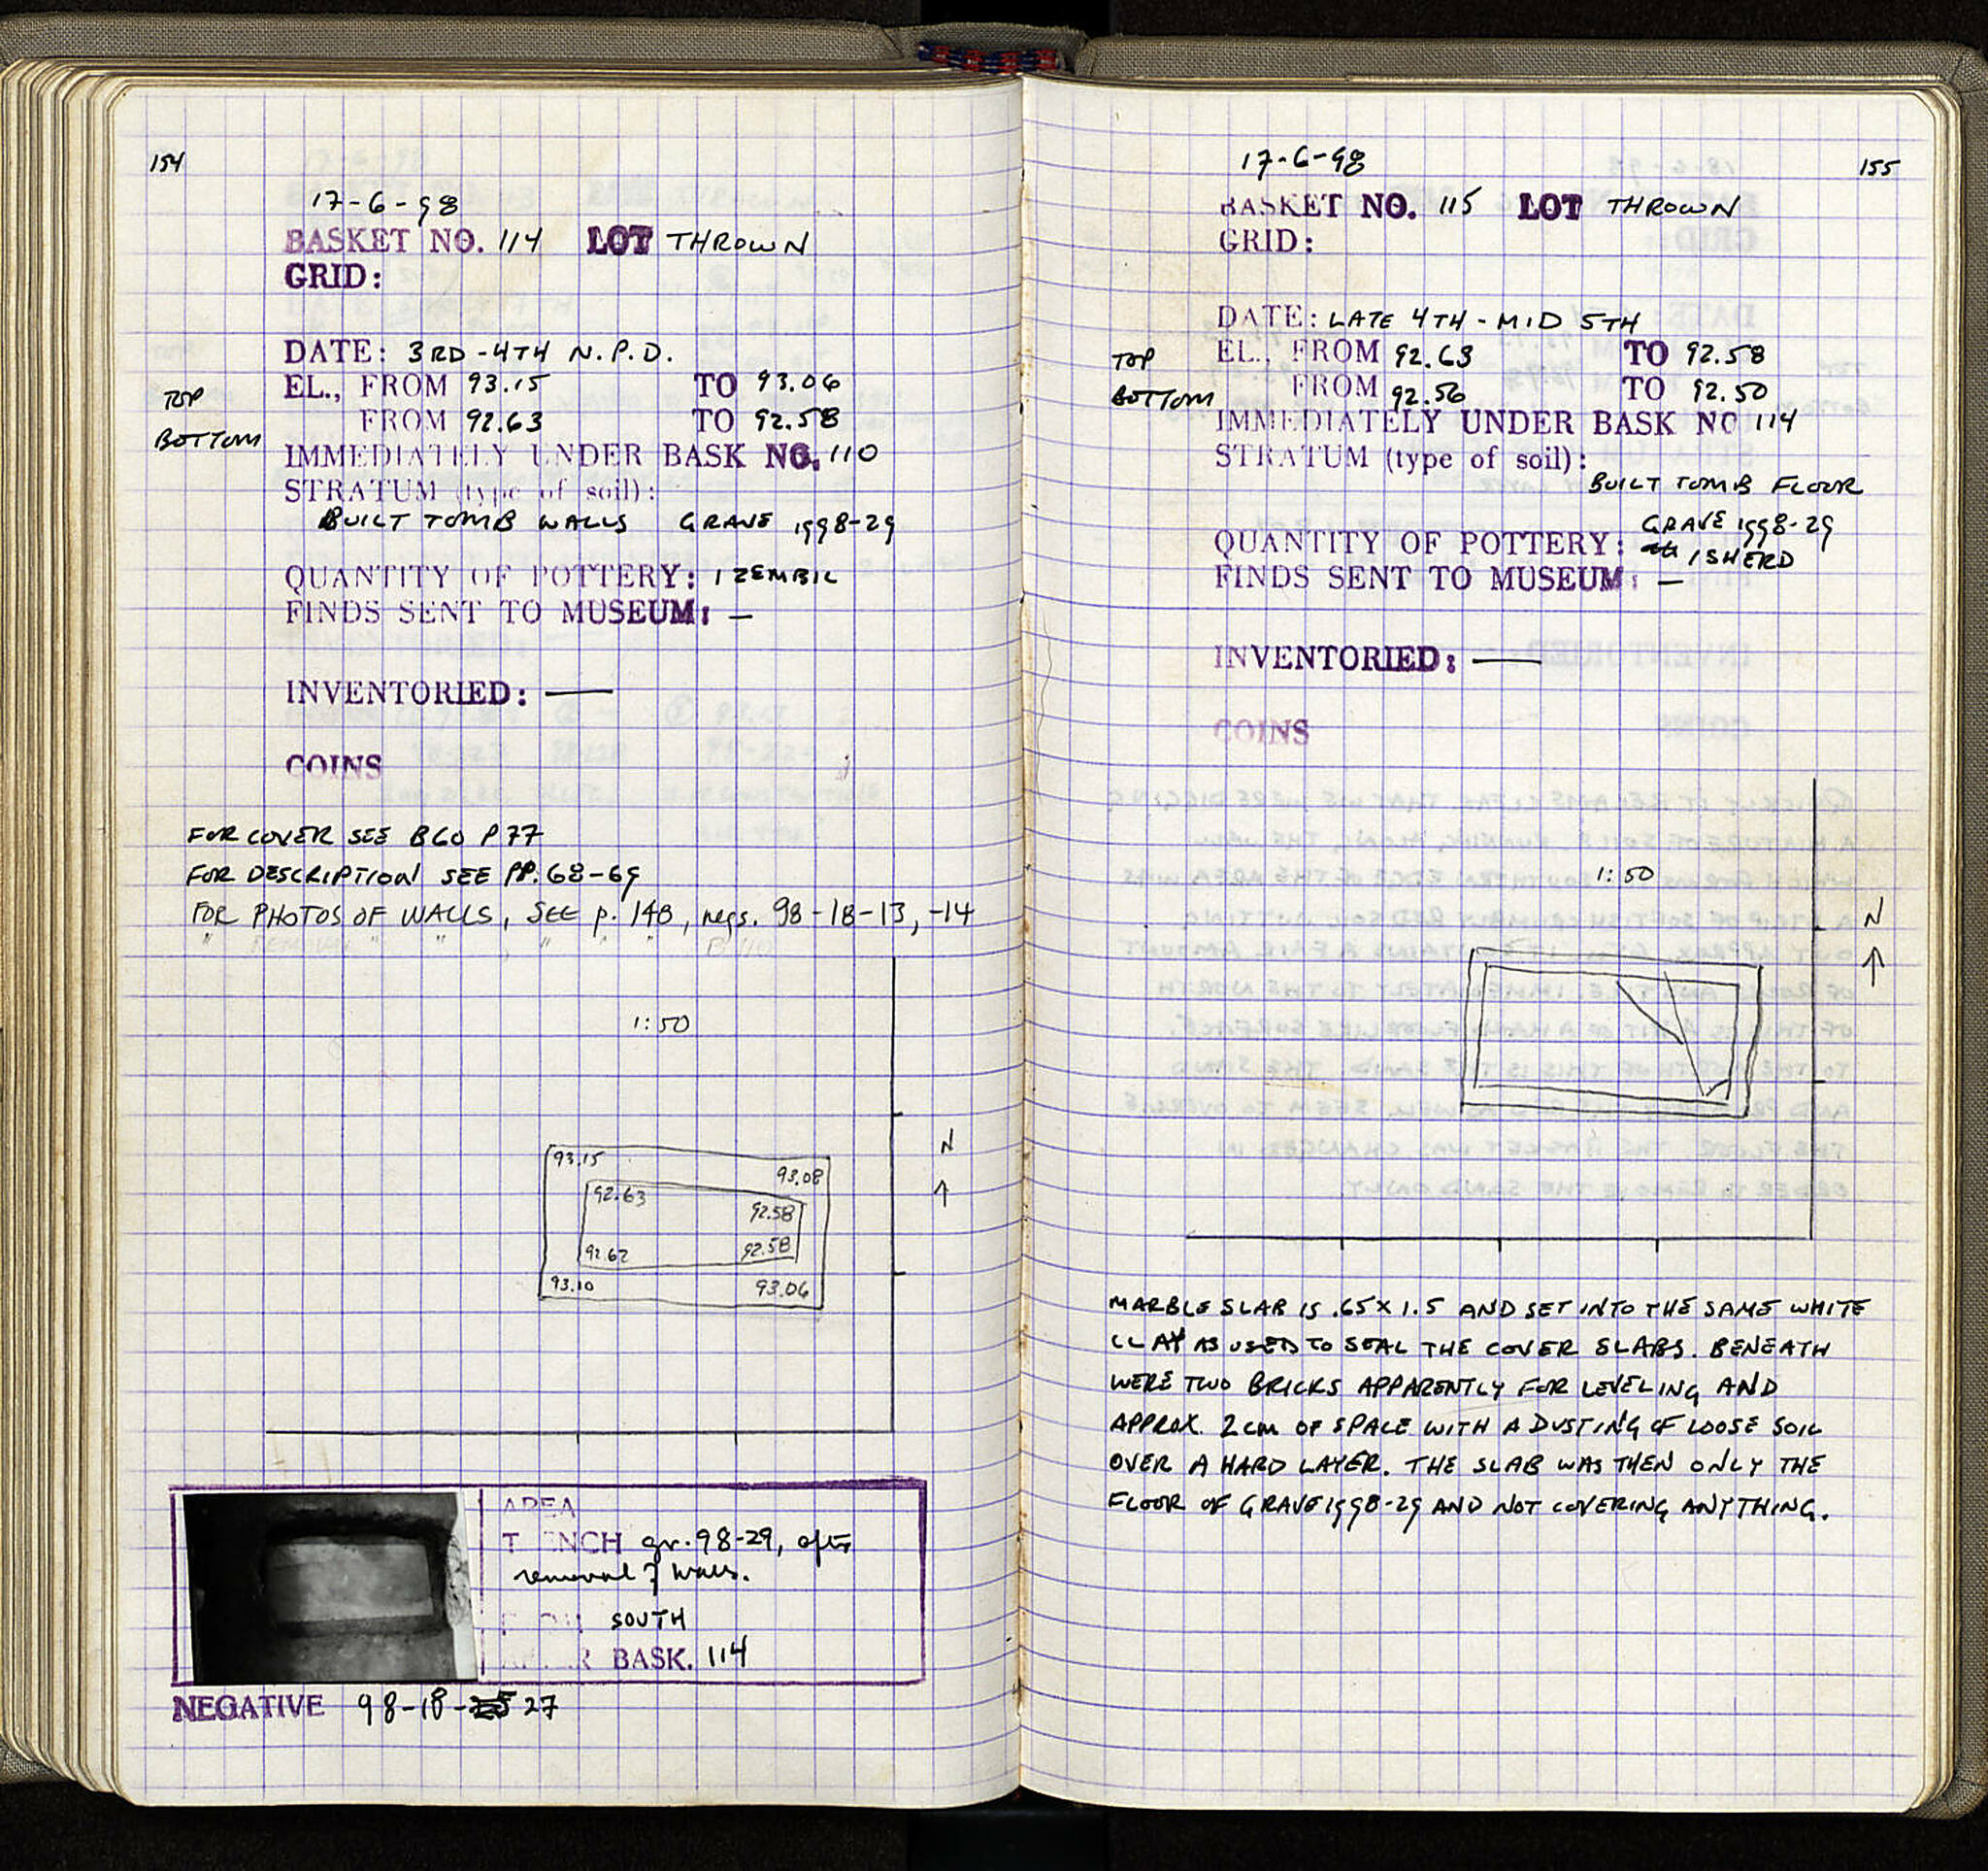 154
17-6-98
BASKET NO. 114 LOT THROWN
GRID:
DATE: 3RD-4TH N.P.D.
TOP EL., FROM 93.15 TO 93.06
BOTTOM FROM 92.63 TO 92.58
IMMEDIATELY UNDER BASK NO. 110
STRATUM (type of soil):
BUILT TOMB WALLS GRAVE 1998-29
QUANTITY OF POTTERY: 1 ZEMBIL
FINDS SENT TO MUSEUM: —
INVENTORIED: —
COINS
FOR COVER SEE B60 P77
FOR DESCRIPTION SEE PP. 68-69
FOR PHOTOS OF WALLS, SEE p. 148, negs. 98-18-13, -14
" REMOVAL " " , " " "
1:50
N
93.15 93.08
92.63 92.58
92.62 92.58
93.10 93.06
AREA
TRENCH gr. 98-29, after
removal of walls.
FROM SOUTH
AFTER BASK. 114
NEGATIVE 98-18-27
155
17-6-98
BASKET NO. 115 LOT THROWN
GRID:
DATE: LATE 4TH - MID 5TH
TOP EL., FROM 92.63 TO 92.58
BOTTOM FROM 92.56 TO 92.50
IMMEDIATELY UNDER BASK NO 114
STRATUM (type of soil):
BUILT TOMB FLOOR
GRAVE 1998-29
QUANTITY OF POTTERY: 1 SHERD
FINDS SENT TO MUSEUM: —
INVENTORIED: —
COINS
1:50
N
MARBLE SLAB IS .65 X 1.5 AND SET INTO THE SAME WHITE
CLAY AS USED TO SEAL THE COVER SLABS. BENEATH
WERE TWO BRICKS APPARENTLY FOR LEVELING AND
APPROX. 2 CM OF SPACE WITH A DUSTING OF LOOSE SOIL
OVER A HARD LAYER. THE SLAB WAS THEN ONLY THE
FLOOR OF GRAVE 1998-29 AND NOT COVERING ANYTHING.